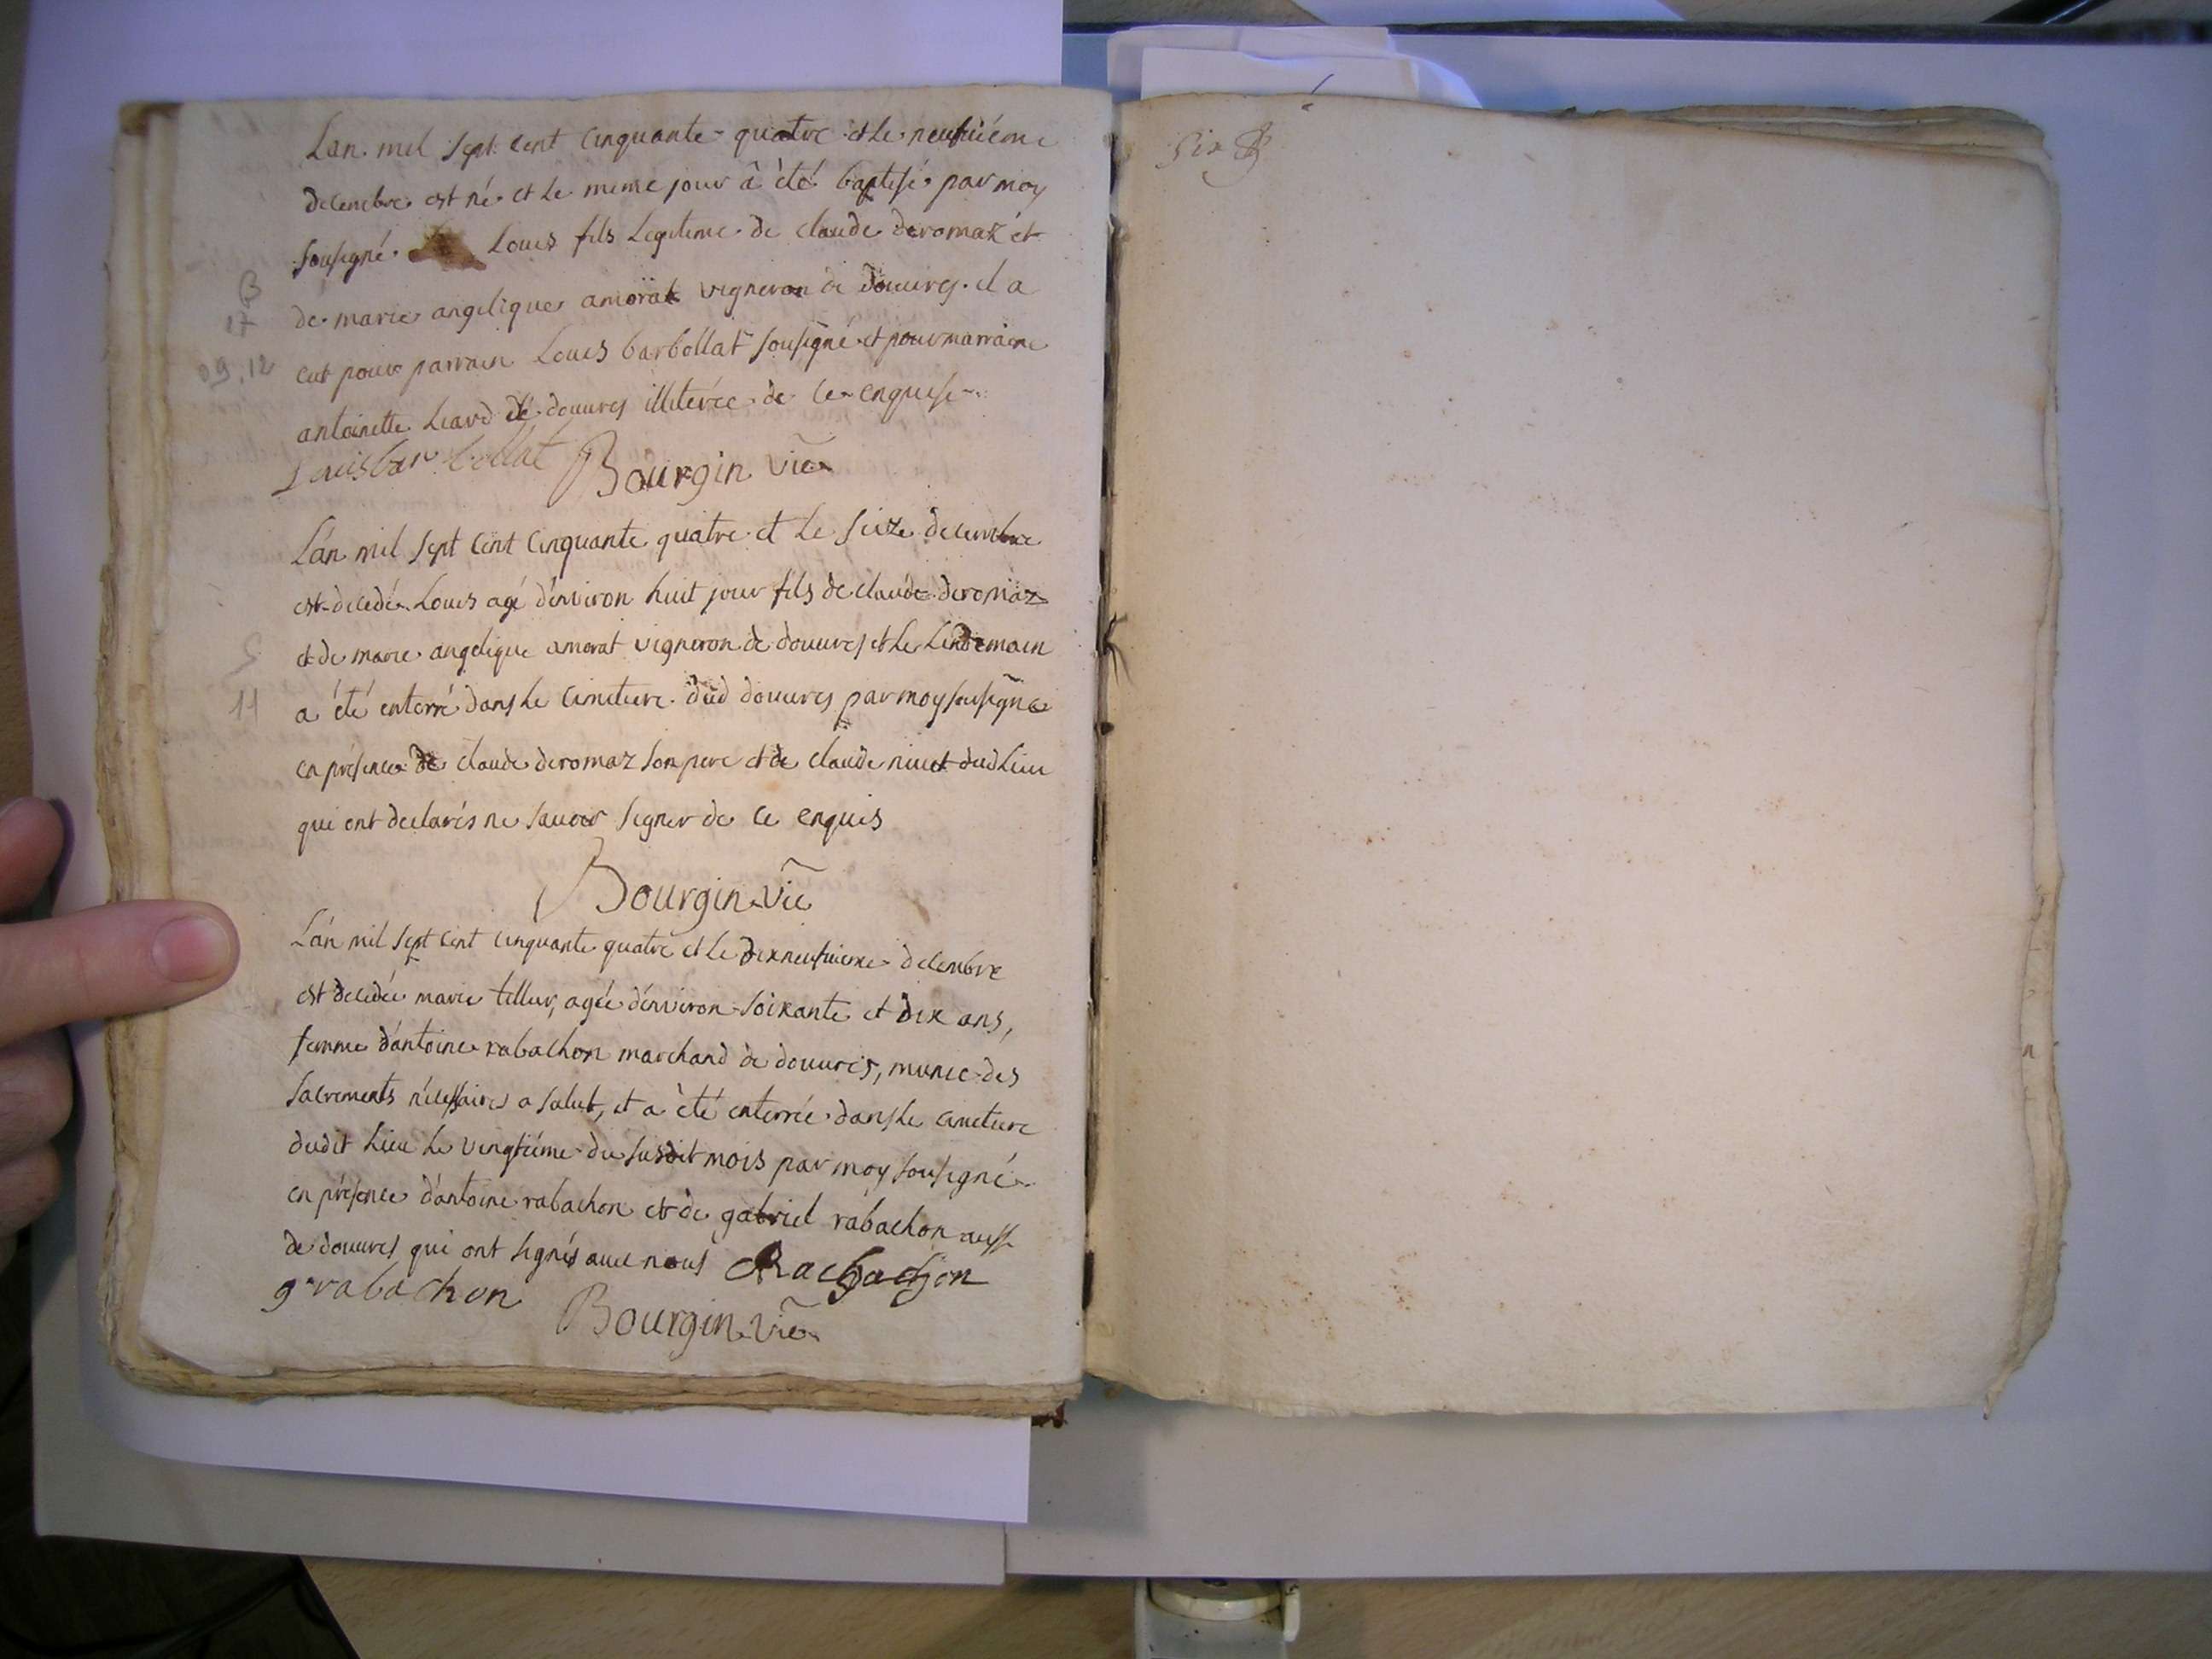 Lan mil sept cent cinquante-quatre et le neufuiéme
decembre est né et le meme jour à été baptisé par moy
sousigné Louis fils Legitime de claude deromaz et
B
17
09.12
de marie angelique amorat vigneron de douures. il a
eut pour parrain Louis barbollat sousigné et pour marraine
antoinette Leard de douures illiterée de ce enquise
Louis bar bollat Bourgin vic
L'an mil sept cent cinquante quatre et le seize decembre
est decedé Louis agé d'environ huit jour fils de claude deromaz
et de marie angelique amorat vigneron de douures et le Lendemain
S
11
a été enterré dans le cimetiere dud douures par moy sousigné
en présence de claude deromaz son pere et de claude niuet dud Lieu
qui ont declarés ne sauoir signer de ce enquis
Bourgin vic
L'an mil sept cent cinquante quatre et le dixneufuieme decembre
est decedée marie tellur, agée d'environ soixante et dix ans,
femme d'antoine rabachon marchand de douures, munie des
sacrements nécessaires a salut, et a été enterrée dans le cimetiere
dudit Lieu le vingtiéme du susdit mois par moy sousigné
en présence d'antoine rabachon et de gabriel rabachon aussi
de douures qui ont signés auec nous Rachachon
g rabachon
Bourgin vic
Six